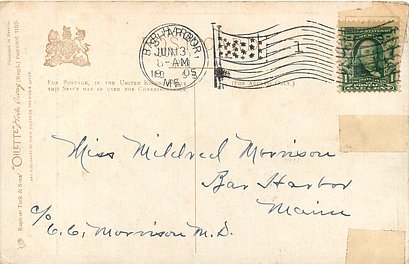 BAR HARBOR
JUN 13
8-AM
1905
ME.
1
FOR POSTAGE, IN THE UNITED KINGDOM ONLY
THIS SPACE MAY BE USED FOR CORRESPONDENCE
"OILETTE"
Raphael Tuck & Sons'
Miss Mildred Morrison
Bar Harbor
Maine
c/o
C. C. Morrison M.D.